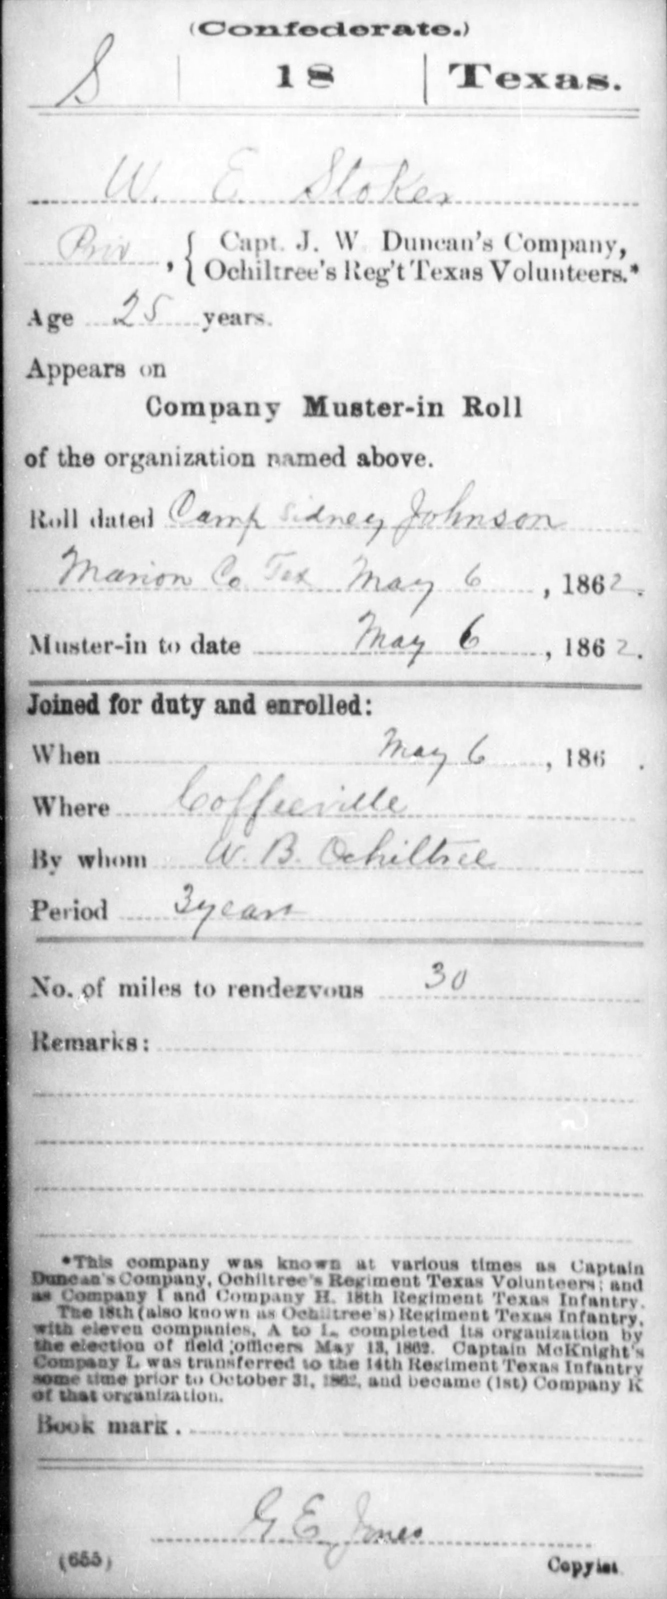 (Confederate.)
S | 18 | Texas.
W. E. Stoker
Priv, { Capt. J. W. Duncan's Company,
Ochiltree's Reg't Texas Volunteers.*
Age 25 years.
Appears on
Company Muster-in Roll
of the organization named above.
Roll dated Camp Sidney Johnson
Marion Co Tex May 6, 1862.
Muster-in to date May 6, 1862.
Joined for duty and enrolled:
When May 6, 186 .
Where Coffeeville
By whom W. B. Ochiltree
Period 3 years
No. of miles to rendezvous 30
Remarks:
*This company was known at various times as Captain
Duncan's Company, Ochiltree's Regiment Texas Volunteers; and
as Company I and Company H, 18th Regiment Texas Infantry.
The 18th (also known as Ochiltree's) Regiment Texas Infantry,
with eleven companies, A to L, completed its organization by
the election of field officers May 13, 1862. Captain McKnight's
Company L was transferred to the 14th Regiment Texas Infantry
some time prior to October 31, 1862, and became (1st) Company K
of that organization.
Book mark.
G. E. Jones
(655) Copyist.